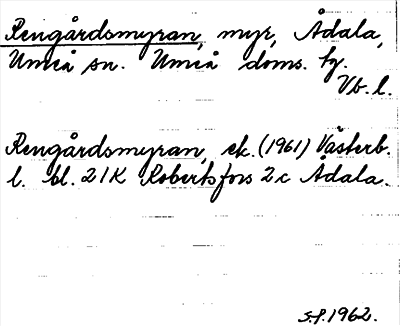 Rengårdsmyran, myr, Ådala,
Umeå sn. Umeå doms. fg.
Vb. l.
Rengårdsmyran, ek. (1961) Västerb.
l. bl. 21K Robertsfors 2c Ådala.
S.P. 1962.